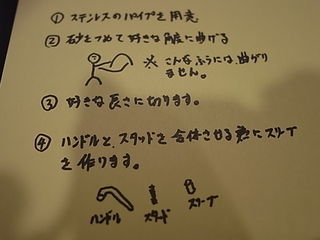 ① ステンレスのパイプを用意
② 砂をつめて好きな角度に曲げる
※ こんなふうには、曲がりません。
③ 好きな長さに切ります。
④ ハンドルと、スタッドを合体させる為にスリーブを作ります。
ハンドル スタッド スリーブ